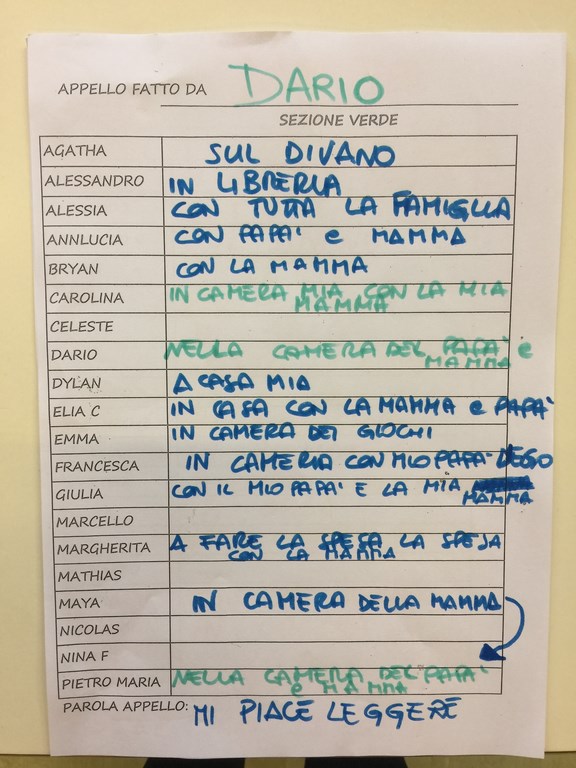 APPELLO FATTO DA DARIO
SEZIONE VERDE
AGATHA SUL DIVANO
ALESSANDRO IN LIBRERIA
ALESSIA CON TUTTA LA FAMIGLIA
ANNLUCIA CON PAPA' e MAMMA
BRYAN CON LA MAMMA
CAROLINA IN CAMERA MIA CON LA MIA
MAMMA
CELESTE
DARIO NELLA CAMERA DEL PAPA' e
MAMMA
DYLAN A CASA MIA
ELIA C IN CASA CON LA MAMMA e PAPA'
EMMA IN CAMERA DEI GIOCHI
FRANCESCA IN CAMERIA CON MIO PAPA' DEGO
GIULIA CON IL MIO PAPA' E LA MIA
MAMMA
MARCELLO
MARGHERITA A FARE LA SPESA LA SPESA
CON LA MAMMA
MATHIAS
MAYA IN CAMERA DELLA MAMMA
NICOLAS
NINA F
PIETRO MARIA NELLA CAMERA DEL PAPA'
e MAMMA
PAROLA APPELLO: MI PIACE LEGGERE